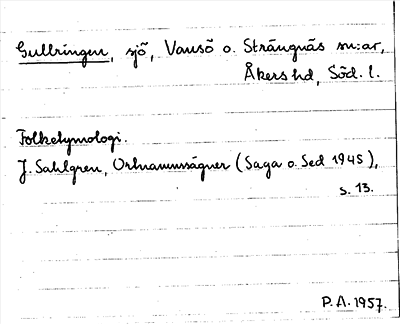 Gullringen, sjö, Vansö o. Strängnäs sn:ar,
Åkers hd, Söd. l.
Folketymologi.
J. Sahlgren, Ortnamnssägner (Saga o. Sed 1945),
s. 13.
P.A. 1957.